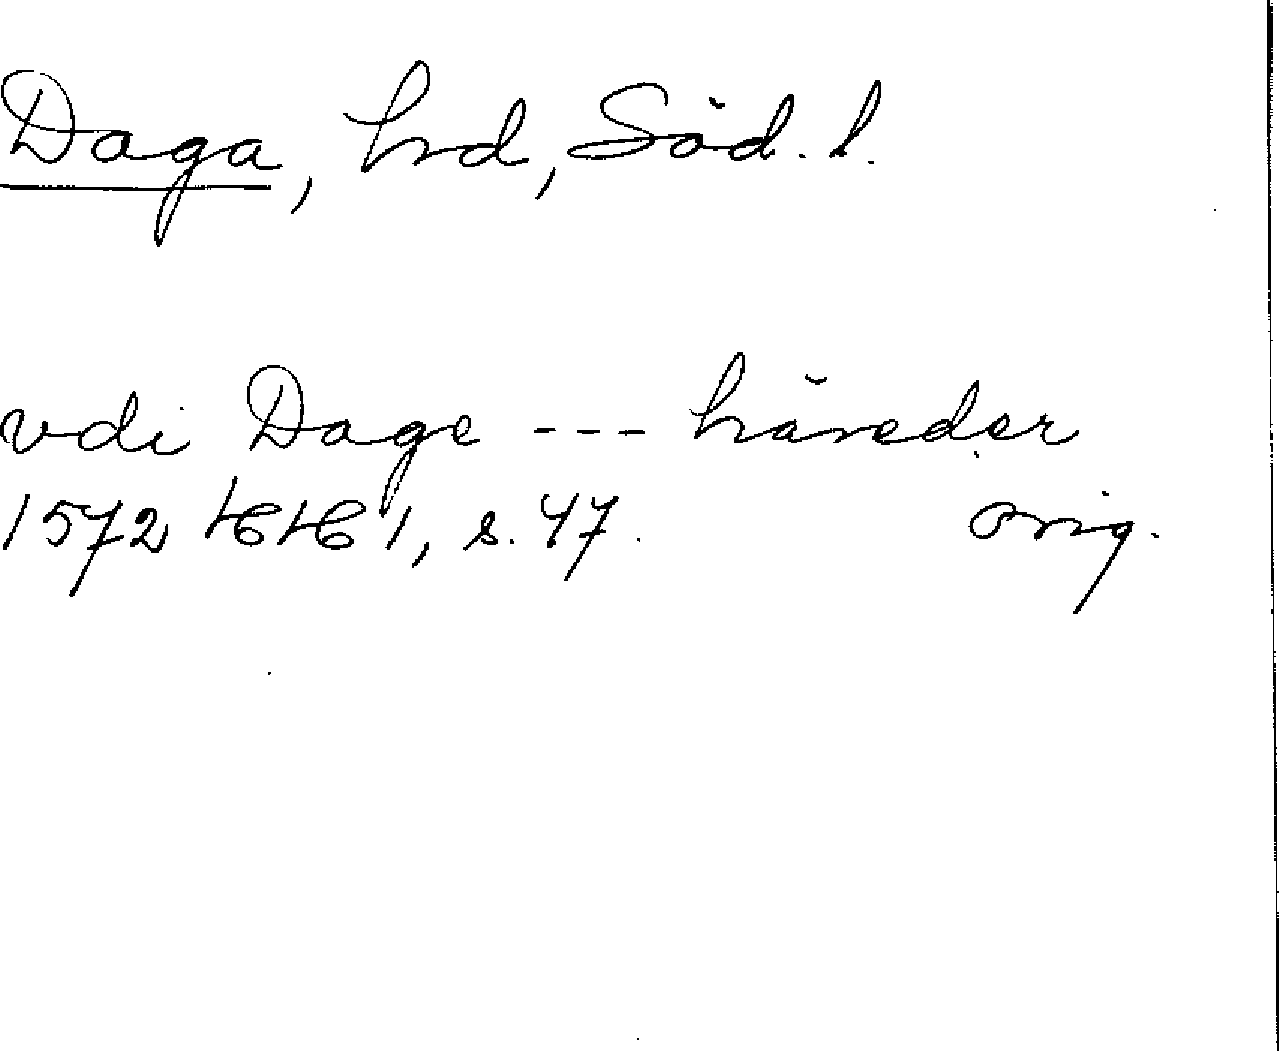 Daga, hrd, Söd. l.
vdi Dage --- häreder
1572 HH 1, s. 47. orig.